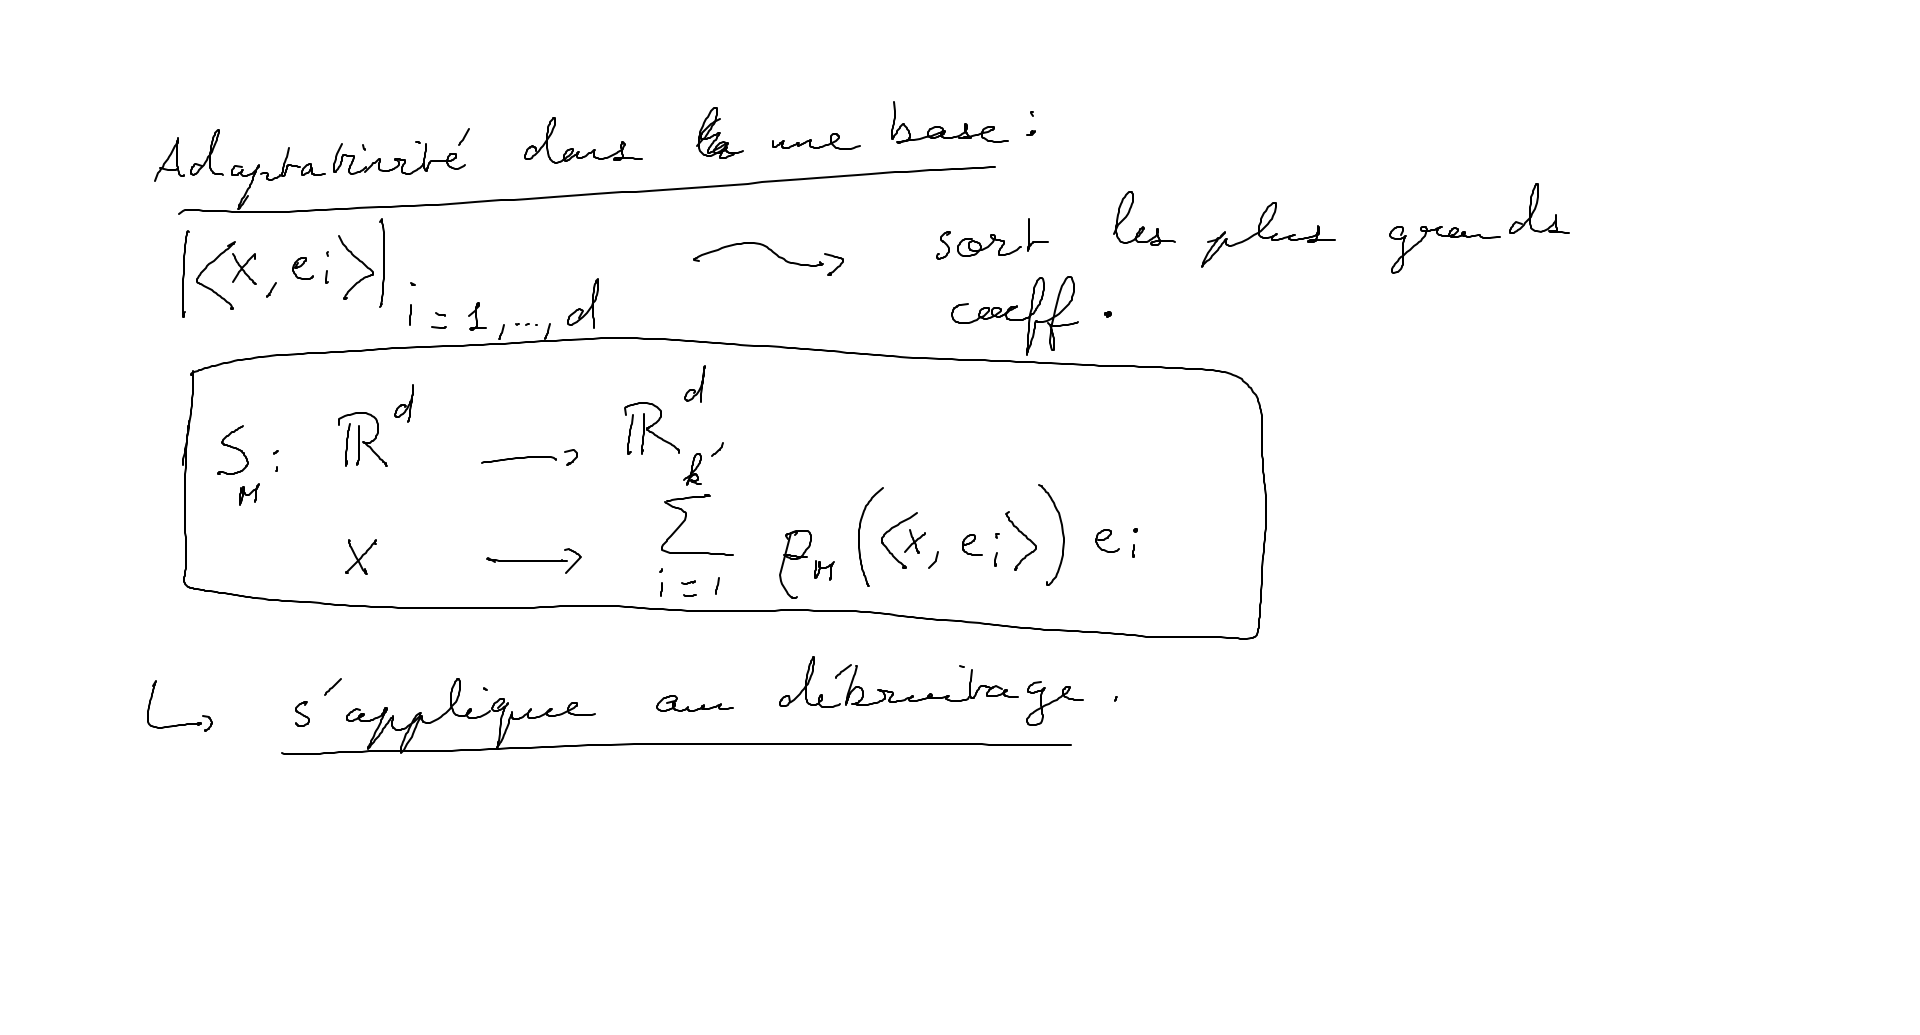 Adaptabilité dans une base :
|<x, ei>| i = 1, ..., d ⇝ sort les plus grands
coeff.
S_M : ℝ^d → ℝ^d
x → ∑_{i=1}^{k'} ρ_M (<x, ei>) ei
↳ s'applique au débruitage.